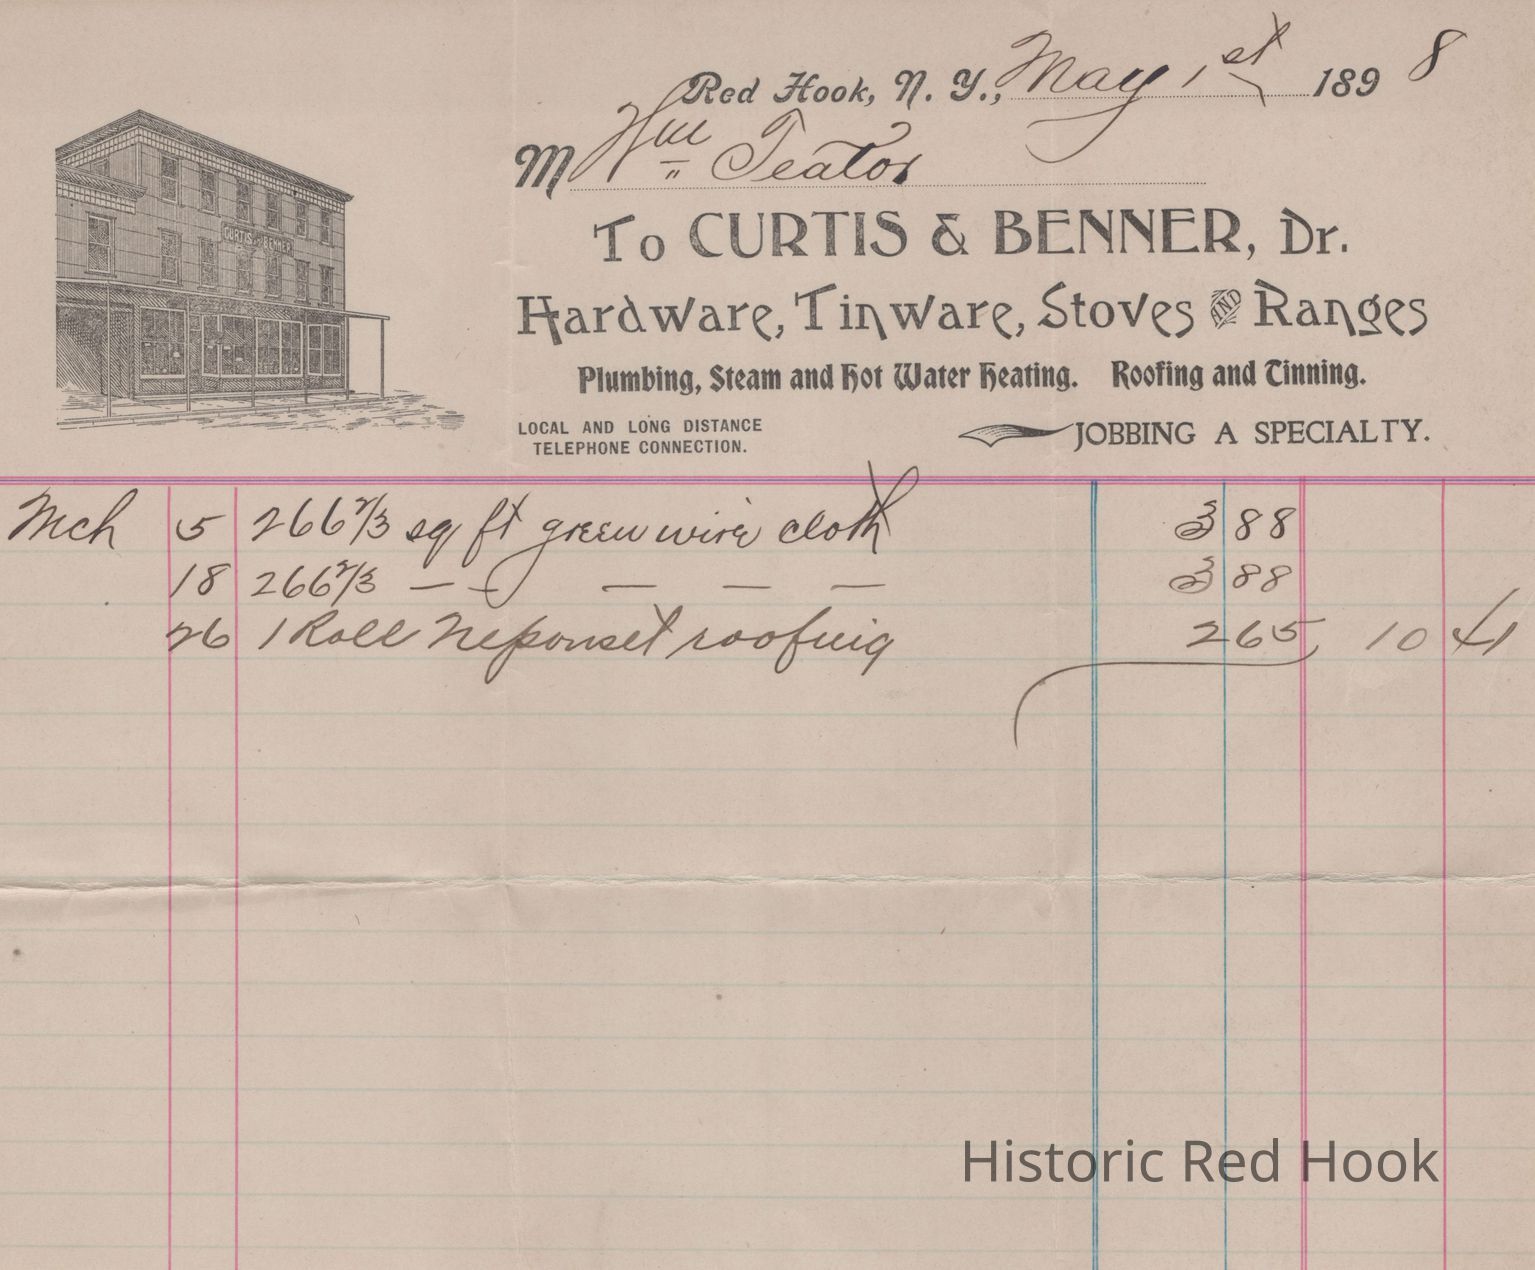 Red Hook, N. Y., May 1st 1898
M Wm Teator
CURTIS & BENNER
To CURTIS & BENNER, Dr.
Hardware, Tinware, Stoves AND Ranges
Plumbing, Steam and Hot Water Heating. Roofing and Tinning.
LOCAL AND LONG DISTANCE
TELEPHONE CONNECTION.
JOBBING A SPECIALTY.
Mch 5 266 2/3 sq ft green wire cloth 3 88
18 266 2/3 — — — — — 3 88
26 1 Roll Neponset roofing 2 65 10 41
Historic Red Hook